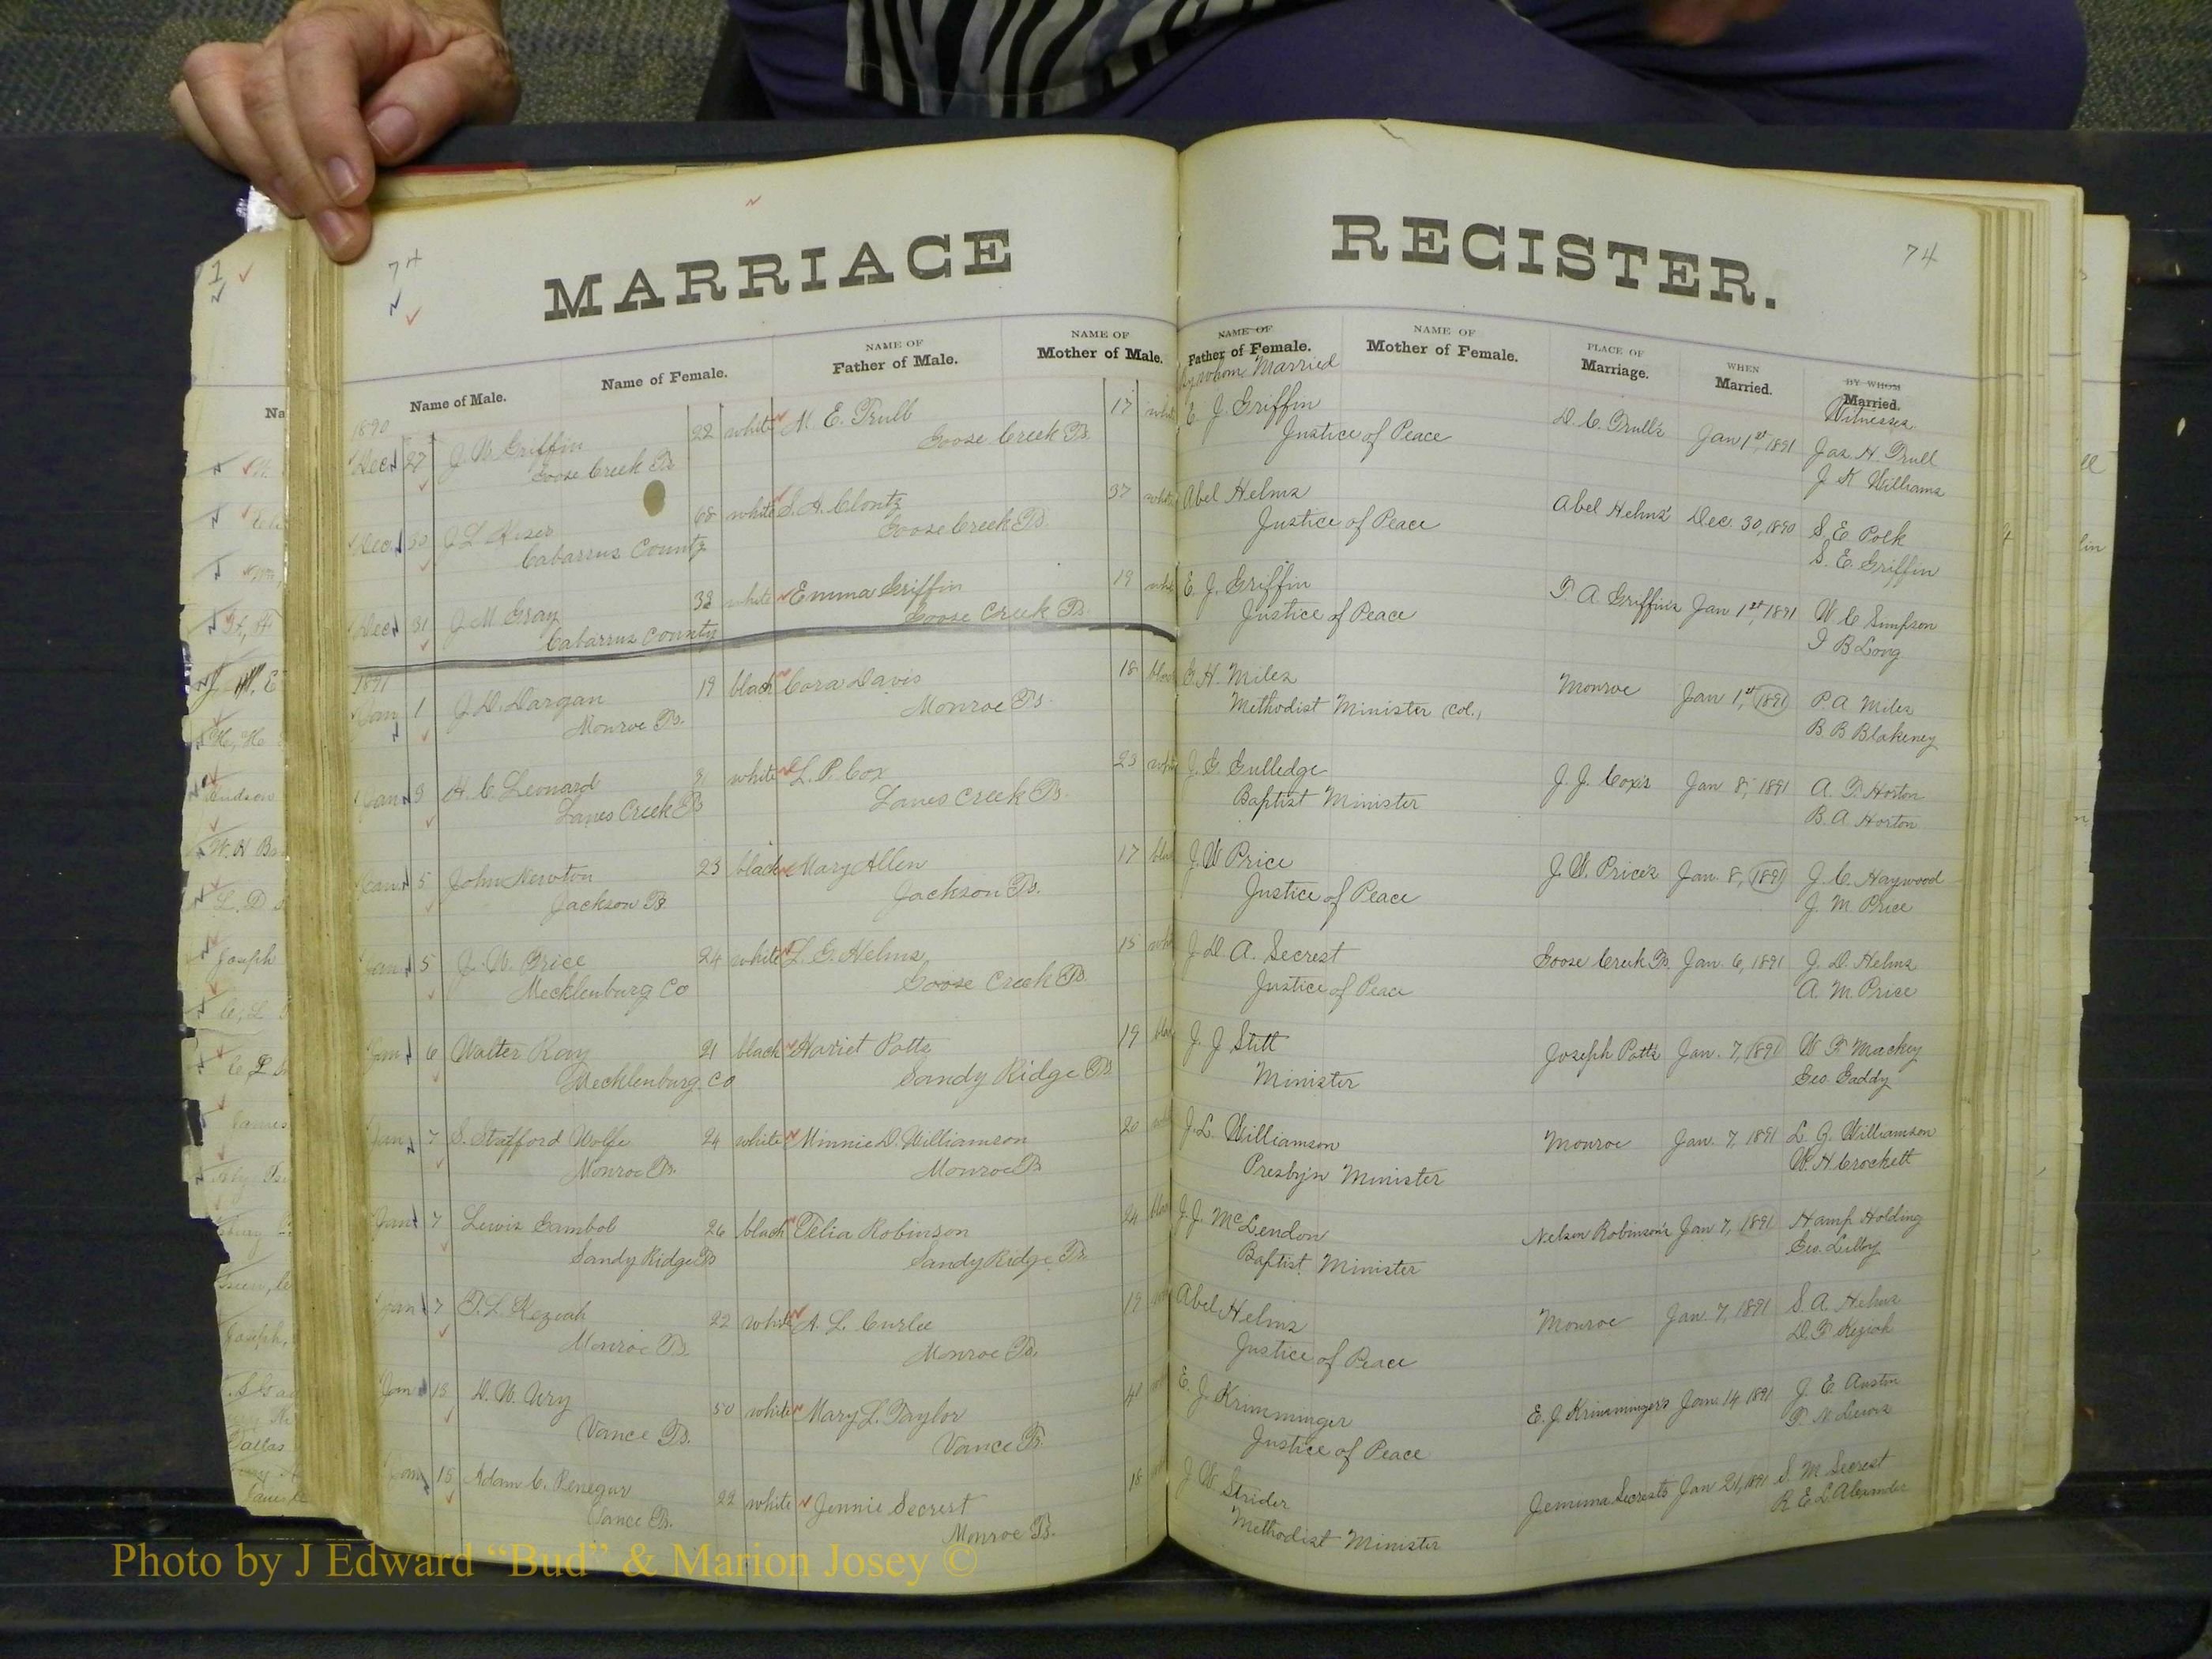 MARRIAGE REGISTER.
74
74
Name of Male. Name of Female. NAME OF Father of Male. NAME OF Mother of Male. NAME OF Father of Female. NAME OF Mother of Female. PLACE OF Marriage. WHEN Married. BY WHOM Married.
By whom Married Witnesses
1890
Dec 27 J. W. Griffin 22 white M. E. Trull 17 white E. J. Griffin D. C. Trull's Jan 1st, 1891 Jas. H. Trull
Goose Creek Ts. Goose Creek Ts. Justice of Peace J K Williams
Dec 30 J L Kiser 68 white S. A. Clontz 37 white Abel Helms Abel Helms' Dec. 30, 1890 S. E. Polk
Cabarrus County Goose Creek Ts. Justice of Peace S. E. Griffin
Dec 31 J M Gray 32 white Emma Griffin 19 white E. J. Griffin T. A. Griffin's Jan 1st, 1891 W. C. Simpson
Cabarrus County Goose Creek Ts. Justice of Peace I B Long
1891
Jan 1 J. D. Dargan 19 black Cora Davis 18 black G. H. Miles Monroe Jan 1st, 1891 P. A Miles
Monroe Ts. Monroe Ts. Methodist Minister (Col.) B. B Blakeney
Jan 3 H. C Leonard white L. P. Cox 23 white J. G. Gulledge J. J. Cox's Jan 8, 1891 A. T. Horton
Lanes Creek Ts Lanes Creek Ts. Baptist Minister B. A Horton
Jan 5 John Newton 23 black Mary Allen 17 black J. W Price J. W. Price's Jan. 8, 1891 J. C. Haywood
Jackson Ts. Jackson Ts. Justice of Peace J. M. Price
Jan 5 J. W. Price 24 white L. G. Helms 15 white J. D. A. Secrest Goose Creek Ts. Jan. 6, 1891 J. D. Helms
Mecklenburg Co Goose Creek Ts. Justice of Peace A. M. Price
Jan 6 Walter Ray 21 black Hariet Potts 19 black J. J Stitt Joseph Potts Jan. 7, 1891 W F Mackey
Mecklenburg Co Sandy Ridge Ts Minister Geo Gaddy
Jan 7 S. Stafford Wolfe 24 white Minnie D. Williamson 20 J. L. Williamson Monroe Jan. 7, 1891 L. G. Williamson
Monroe Ts. Monroe Ts Presbyn Minister W. H Crockett
Jan 7 Lewis Gambol 26 black Telia Robinson 24 black J. J. McLendon Nelson Robinson's Jan 7, 1891 Hamp Holding
Sandy Ridge Ts Sandy Ridge Ts. Baptist Minister Geo.
Jan 7 T. L. Keziah 22 white A. L. Curlee 19 Abel Helms Monroe Jan 7, 1891 S. A. Helms
Monroe Ts. Monroe Ts. Justice of Peace D. F Keziah
Jan 13 D. W. Ury 50 white Mary L. Taylor 41 E. J. Krimminger E. J. Krimminger's Jan. 14, 1891 J. E. Austin
Vance Ts. Vance Ts. Justice of Peace
Jan 15 Adam C. Renegar 22 white Jennie Secrest 18 J. W Strider Jemima Secrests Jan 21, 1891 S. M Secrest
Vance Ts. Monroe Ts. Methodist Minister R. E. L Alexander
Photo by J Edward “Bud” & Marion Josey ©